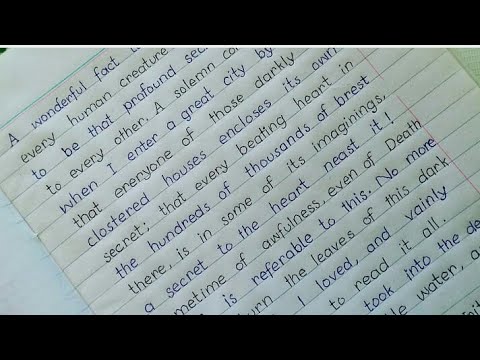 A wonderful fact
every human creature
to be that profound sec
to every other. A solemn con
when I enter a great city by
that eneryone of those darkly
clostered houses encloses its own
secret; that every beating heart in
the hundreds of thousands of brest
there, is in some of its imaginings,
a secret to the heart neast it!
metime of awfulness, even of Death
is referable to this. No more
urn the leaves of this dark
I loved, and vainly
to read it all.
took into the de
le water, a